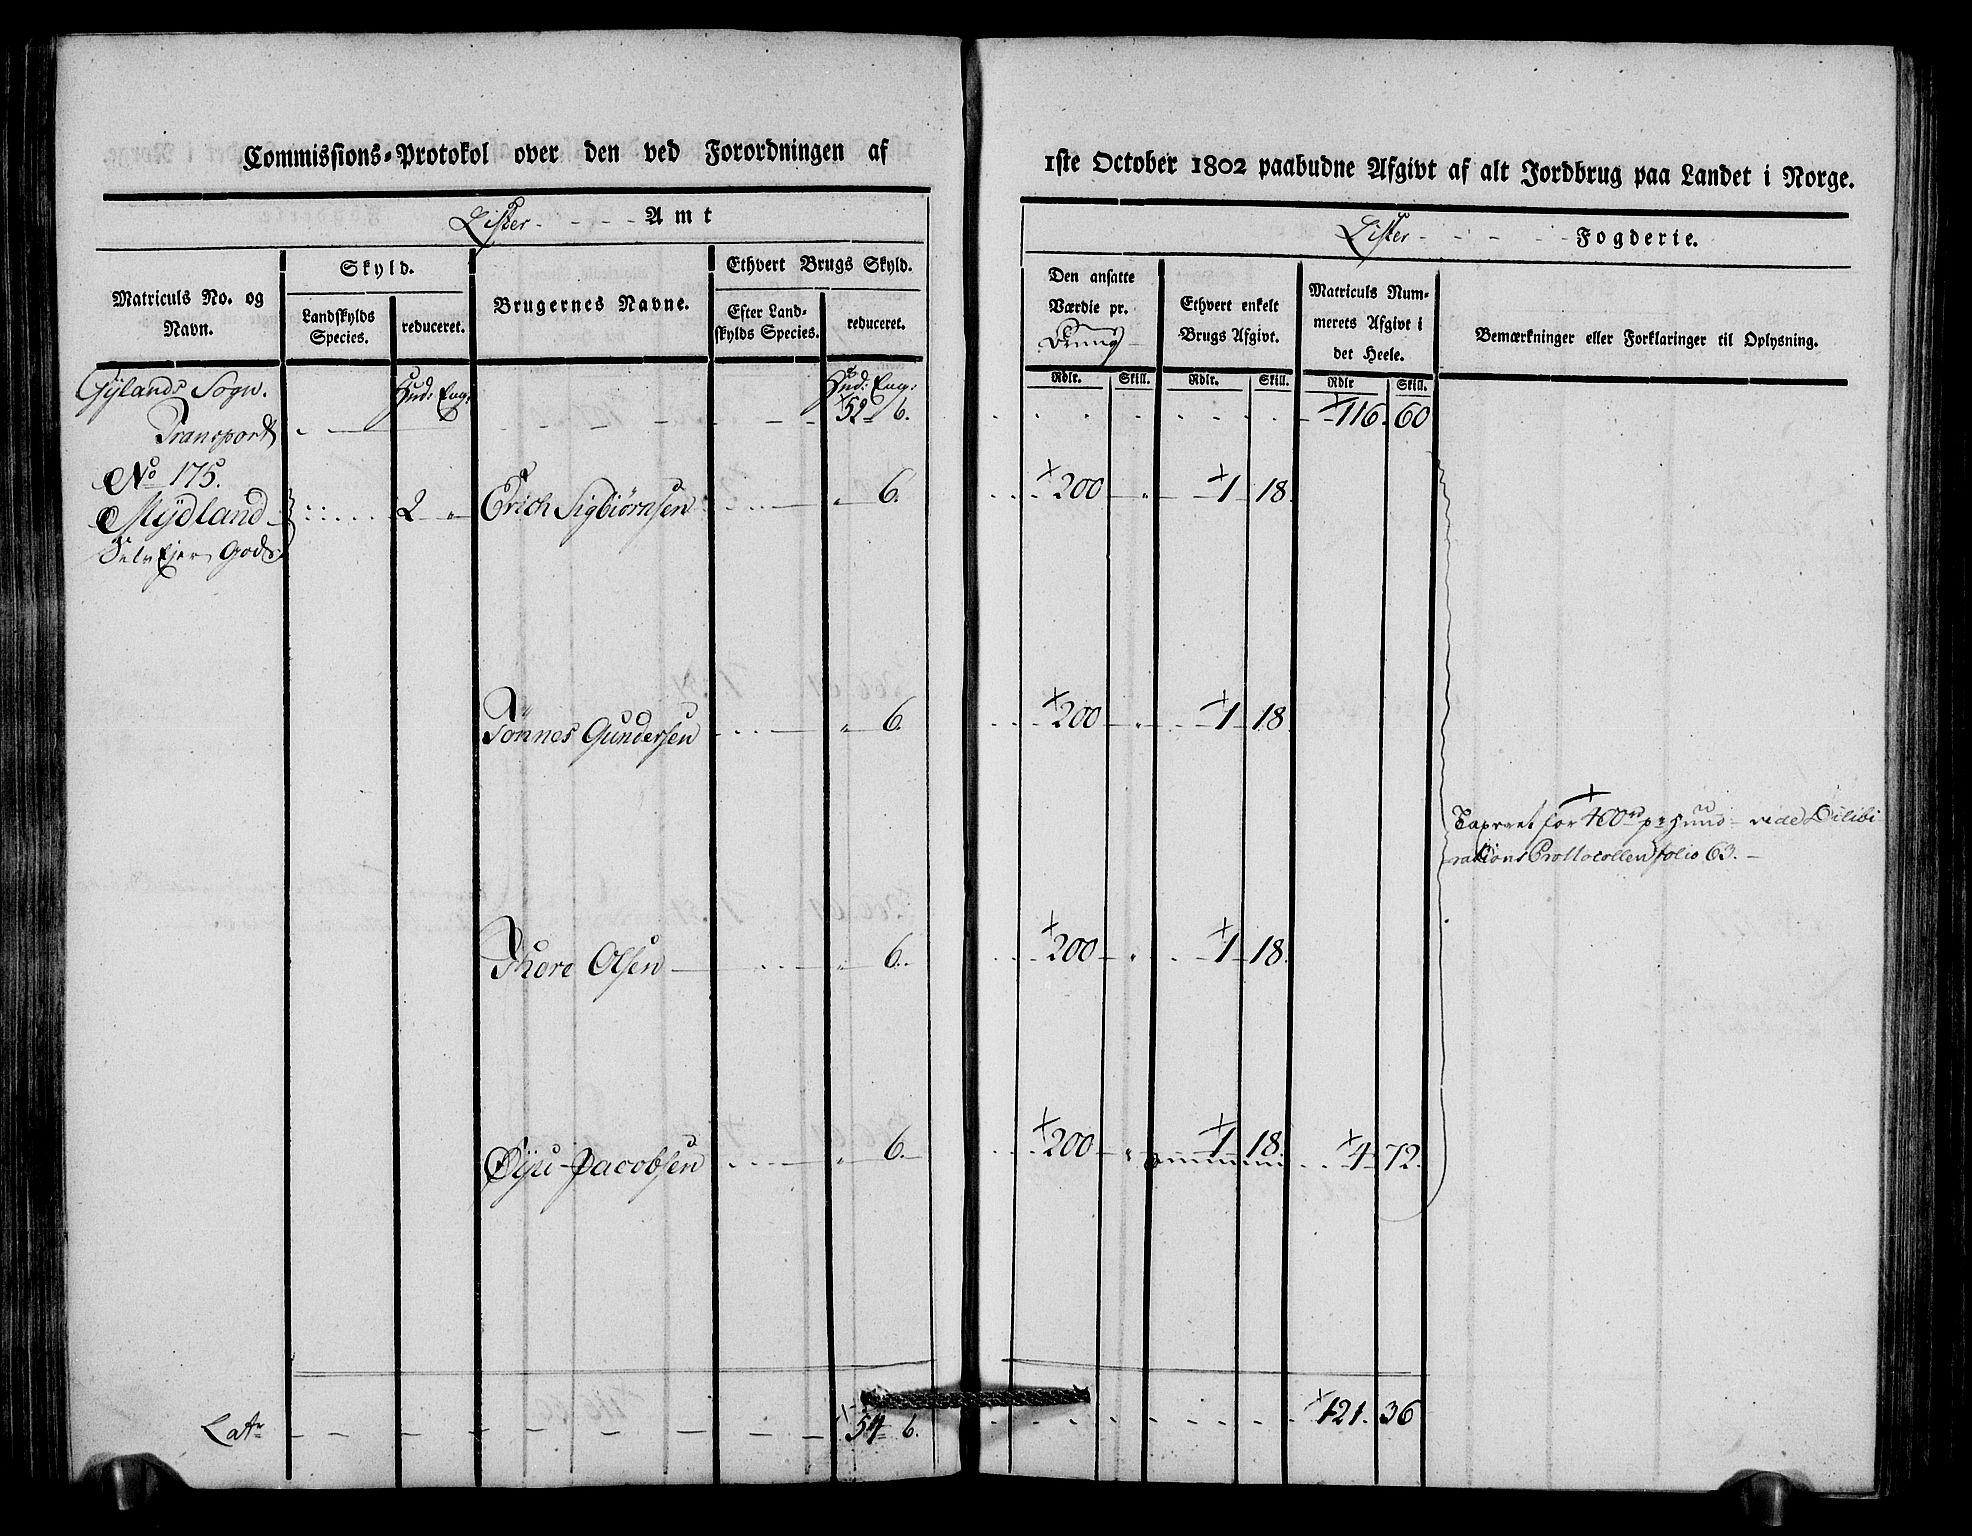 Commissions-Protokol over den ved Forordningen af
Lister - - - Amt
Matriculs No. og Navn.
Skyld.
Landskylds Species.
reduceret.
Brugernes Navne.
Ethvert Brugs Skyld.
Efter Landskylds Species.
reduceret.
Gylands Sogn.
Hud: Eng:
Hud: Eng:
Transport
52 6.
No 175.
Mydland
2 "
Erich Sigbiørnsen
" 6.
Selv Ejer Gods
Tønnes Gundersen
" 6.
Thore Olsen
" 6.
Jacobsen
" 6.
Latr
54 6.
1ste October 1802 paabudne Afgivt af alt Jordbrug paa Landet i Norge.
Lister - - - Fogderie.
Den ansatte Værdie pr.
Ethvert enkelt Brugs Afgivt.
Matriculs Nummerets Afgivt i det Heele.
Bemærkninger eller Forklaringer til Oplysning.
Rdlr. Skill. Rdlr. Skill. Rdlr Skill.
116. 60
200 " 1 18.
200 " 1 18.
for 400 rd pr Hud vide Dilibi
rations Protocollen folio 63.
200 " 1 18.
200 " 1 18. 4 72.
121. 36